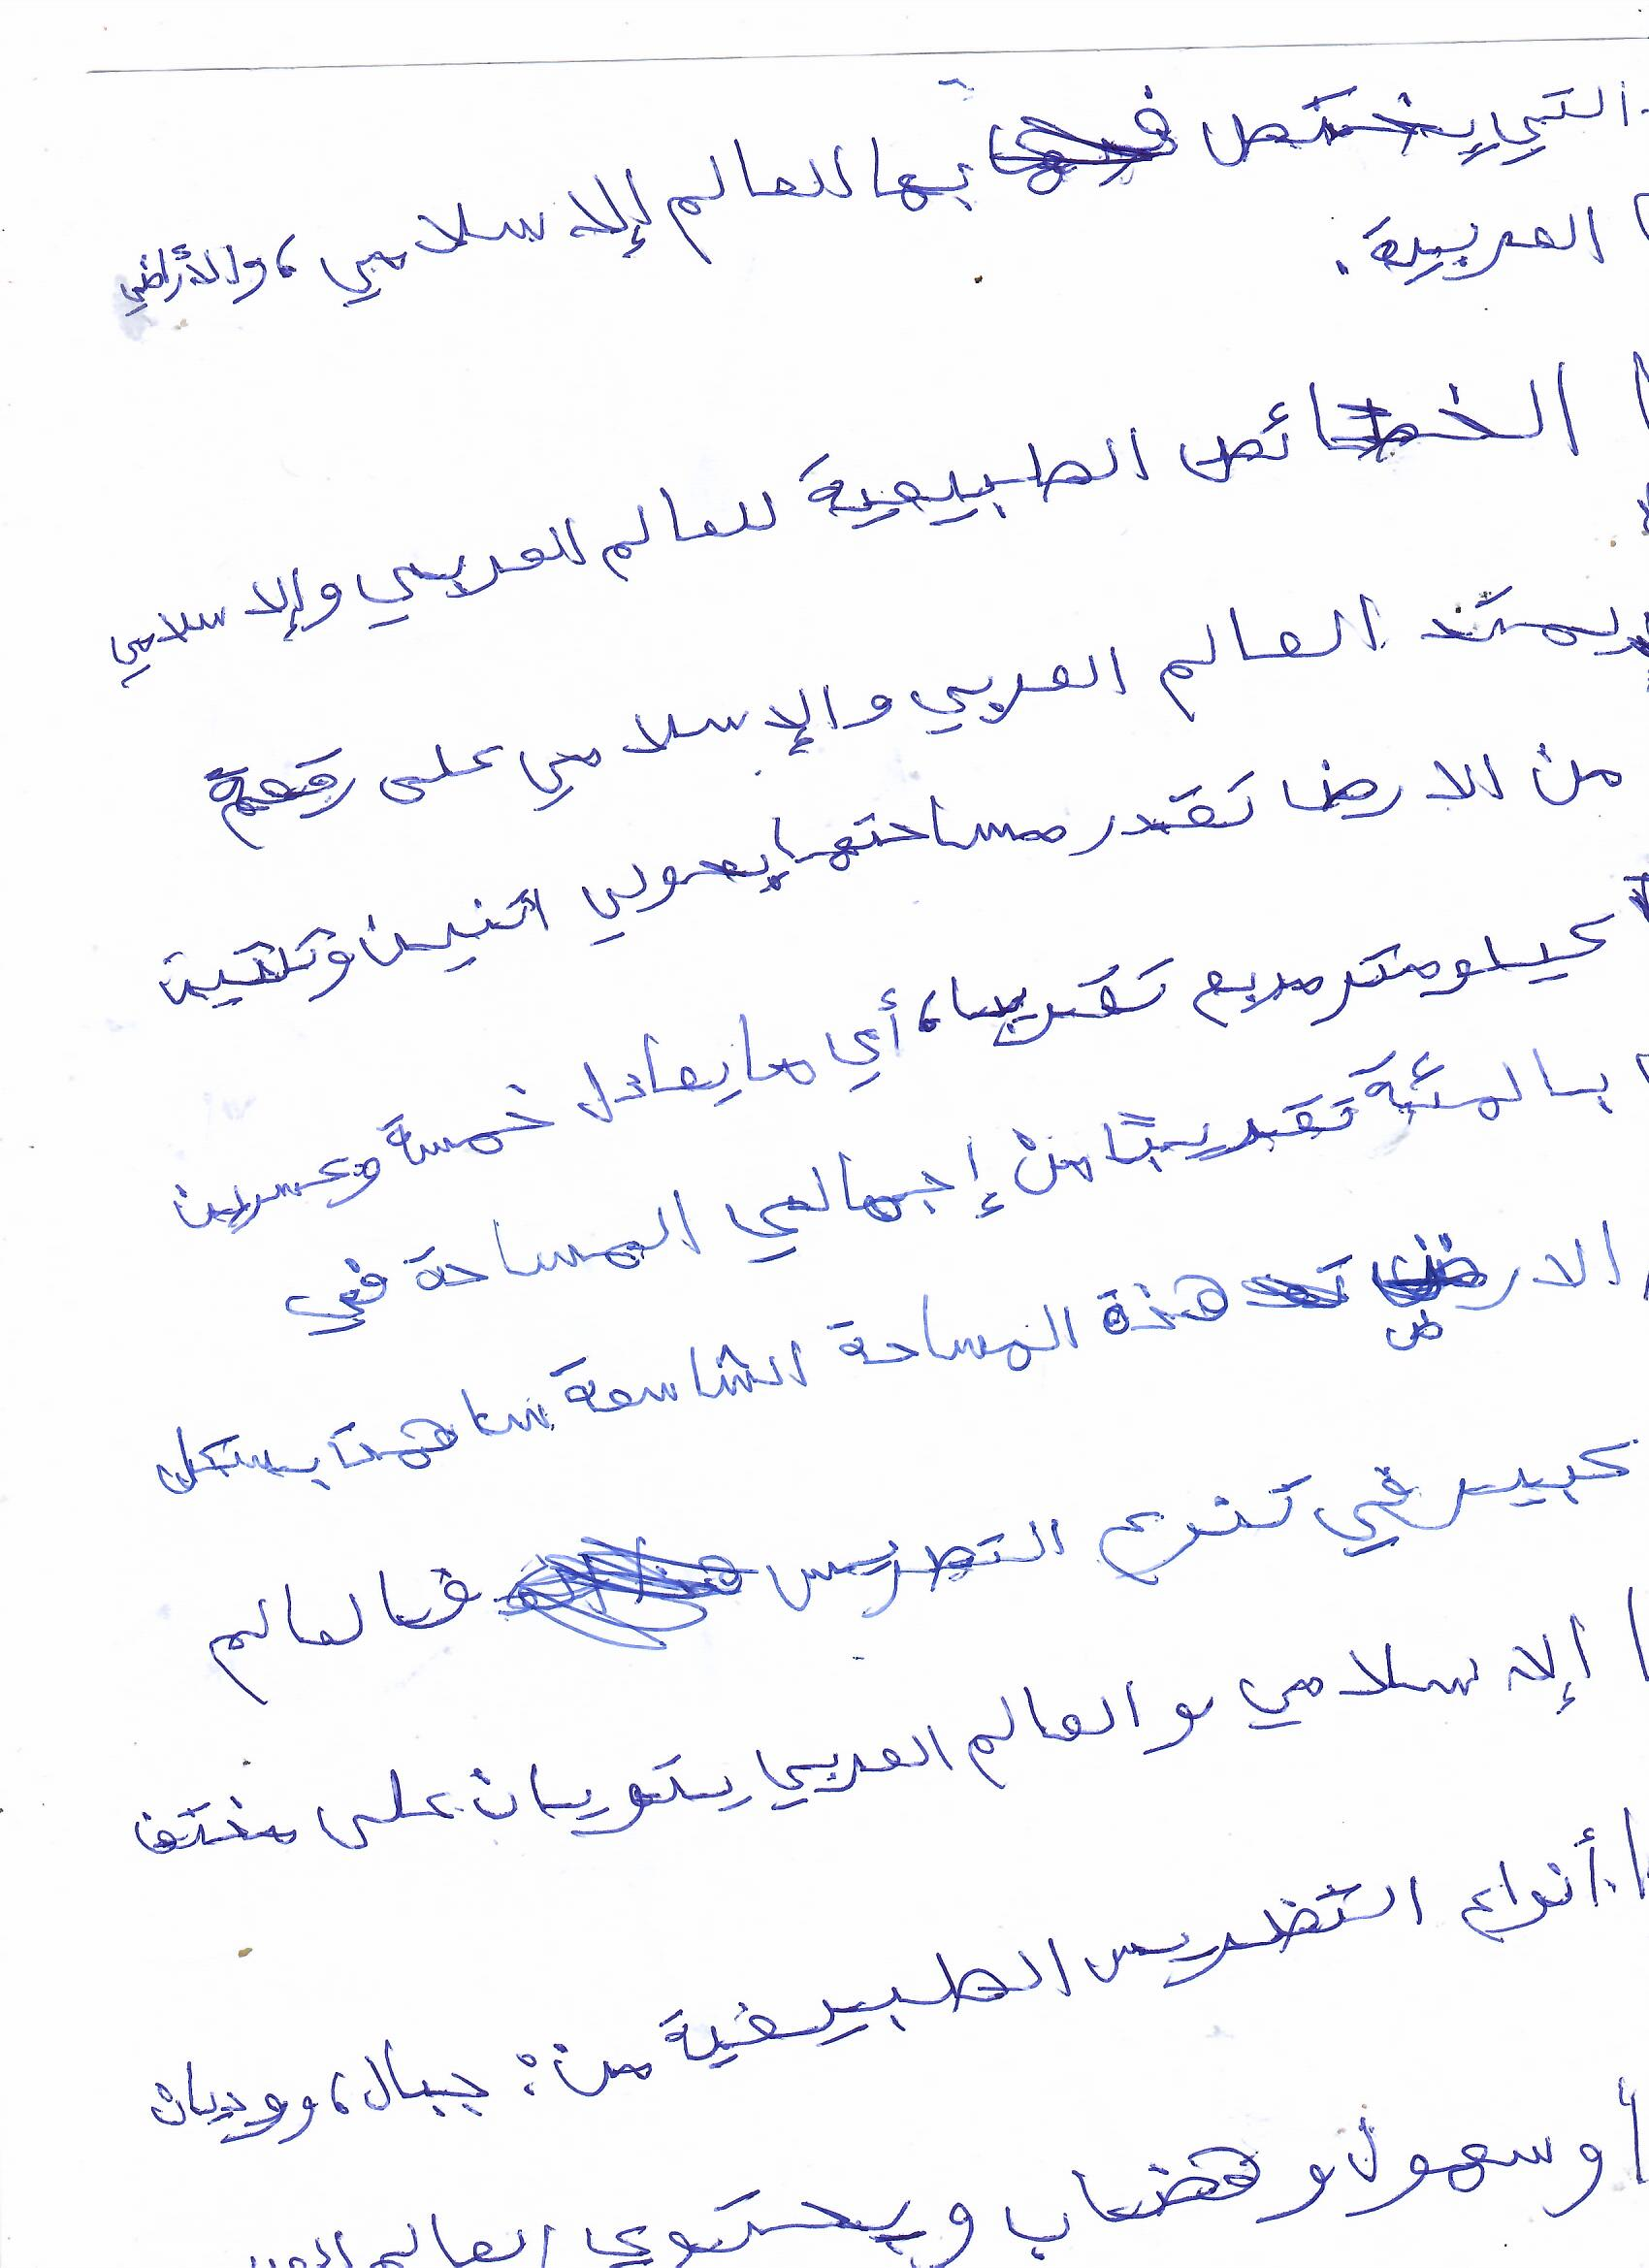 التي يختص بها العالم الإسلامي، والأراضي
العربية.
الخصائص الطبيعية للعالم العربي والإسلامي
يمتد العالم العربي والإسلامي على رقعة
من الارض تقدر مساحتها بحولي اثنين وثلثين
كيلو متر مربع تقريبا، أي ما يعادل خمسة وعسرين
بالمئة تقريبًا من إجمالي المساحة في
الارض هذة المساحة الشاسعة ساهمت بستكل
كبير في تنوع التضريس فالعالم
الإسلامي والعالم العربي يتويان على مختف
أنواع التضريس الطبيعية من: جبال، ووديان
وسهول و هضاب ويحتوي العالم